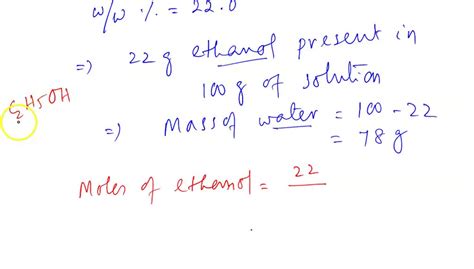 w/w % = 22.0
=> 22 g ethanol present in
100 g of solution
C2H5OH
=> Mass of water = 100 - 22
= 78 g
Moles of ethanol = 22